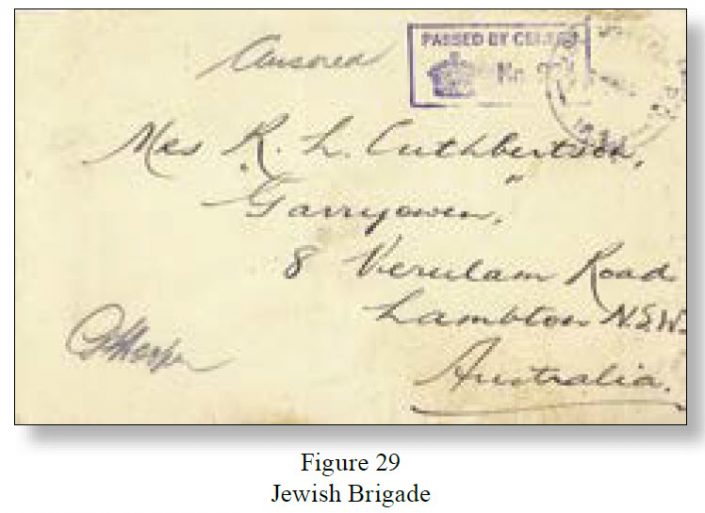 Censored
PASSED BY
No.
Mrs R. L. Cuthbertson,
"Garryowen,"
8 Verulam Road
Lambton N.S.W.
Australia.
Figure 29
Jewish Brigade